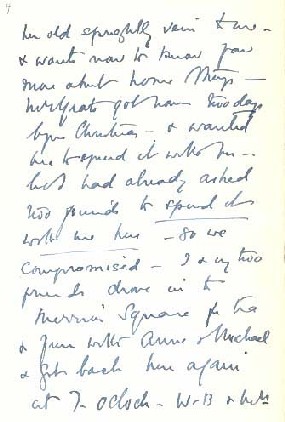 4
her old sprightly vein & we -
& wants now to know far
more about home things -
got home two days
before Christmas - & wanted
me to spend it with her -
but I had already asked
two friends to spend it
with me here - so we
compromised - I & my two
friends drove in to
Merrion Square for tea
& with Anne & Michael
& got back here again
at 7- oclock - W.B &